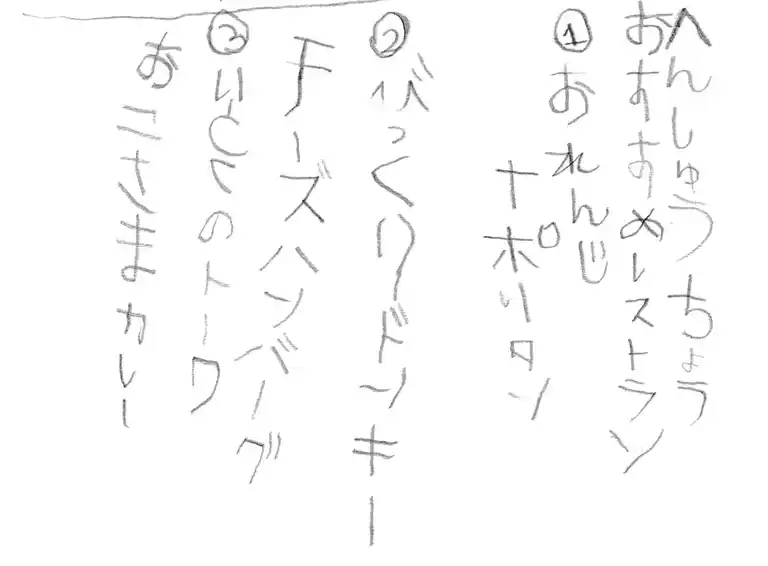 へんしゅうちょう
おすすめレストラン
① おれんじ
ナポリタン
② びっくりドンキー
チーズハンバーグ
③ いとくのトーク
おこさまカレー